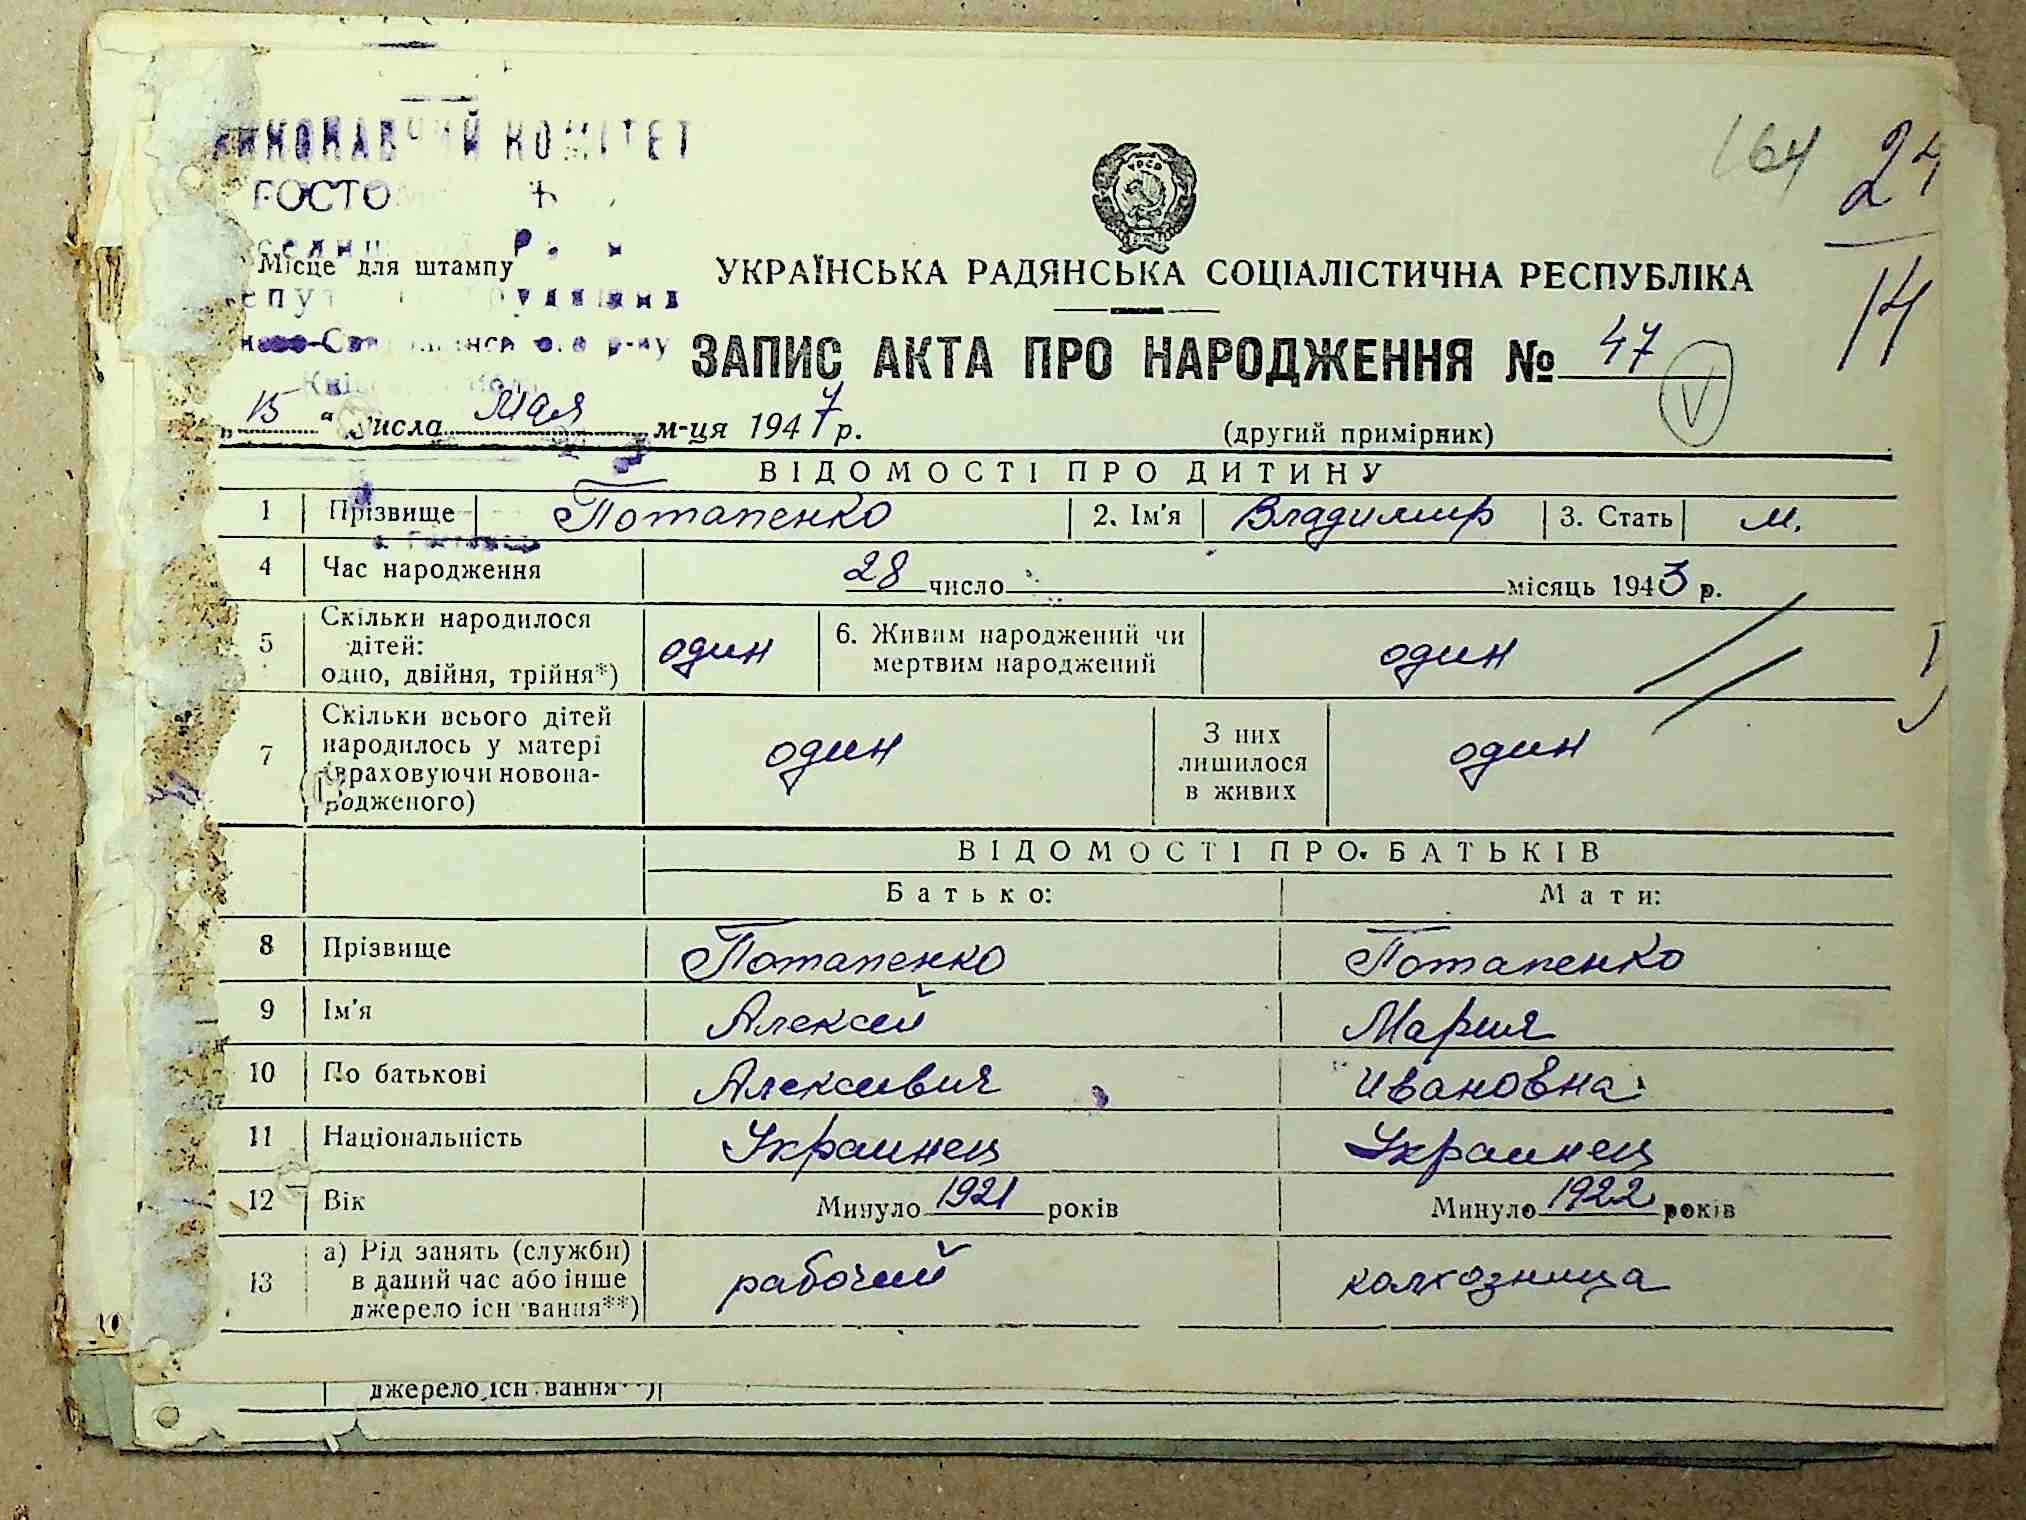 КОМІТЕТ
164 24
14
УРСР
ГОСТО
Місце для штампу
УКРАЇНСЬКА РАДЯНСЬКА СОЦІАЛІСТИЧНА РЕСПУБЛІКА
ЗАПИС АКТА ПРО НАРОДЖЕННЯ № 47
V
„15“ числа Мая м-ця 1947 р.
(другий примірник)
ВІДОМОСТІ ПРО ДИТИНУ
1 Прізвище Потапенко 2. Ім'я Владимир 3. Стать м.
4 Час народження 28 число місяць 1943 р.
5 Скільки народилося дітей: одно, двійня, трійня*) один 6. Живим народжений чи мертвим народжений один
7 Скільки всього дітей народилось у матері (враховуючи новона-родженого) один З них лишилося в живих один
ВІДОМОСТІ ПРО БАТЬКІВ
Батько: Мати:
8 Прізвище Потапенко Потапенко
9 Ім'я Алексей Мария
10 По батькові Алексеевич Ивановна
11 Національність Украинец Украинец
12 Вік Минуло 1921 років Минуло 1922 років
13 а) Рід занять (служби) в даний час або інше джерело існування**) рабочий колхозница
джерело існ вання**)